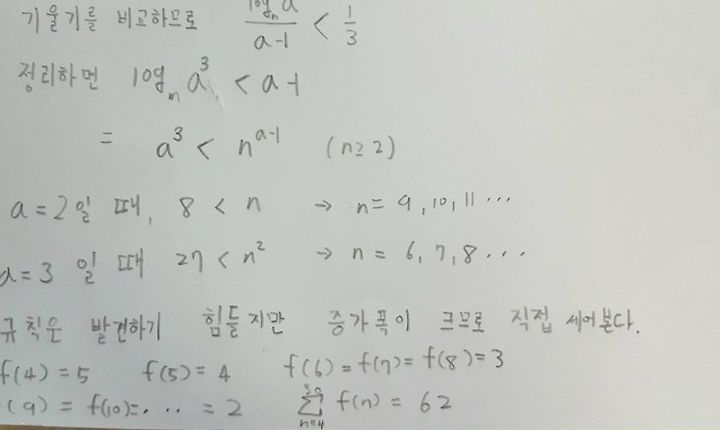 기울기를 비교하므로 logₙa/(a-1) < 1/3
정리하면 logₙa³ < a-1
= a³ < n^(a-1) (n≥2)
a=2일 때, 8 < n → n= 9, 10, 11 ...
a=3 일 때 27 < n² → n = 6, 7, 8 ...
규칙은 발견하기 힘들지만 증가폭이 크므로 직접 세어본다.
f(4)=5 f(5)=4 f(6)=f(7)=f(8)=3
(9) = f(10)= ... =2 Σ_(n=4)^(30) f(n) = 62